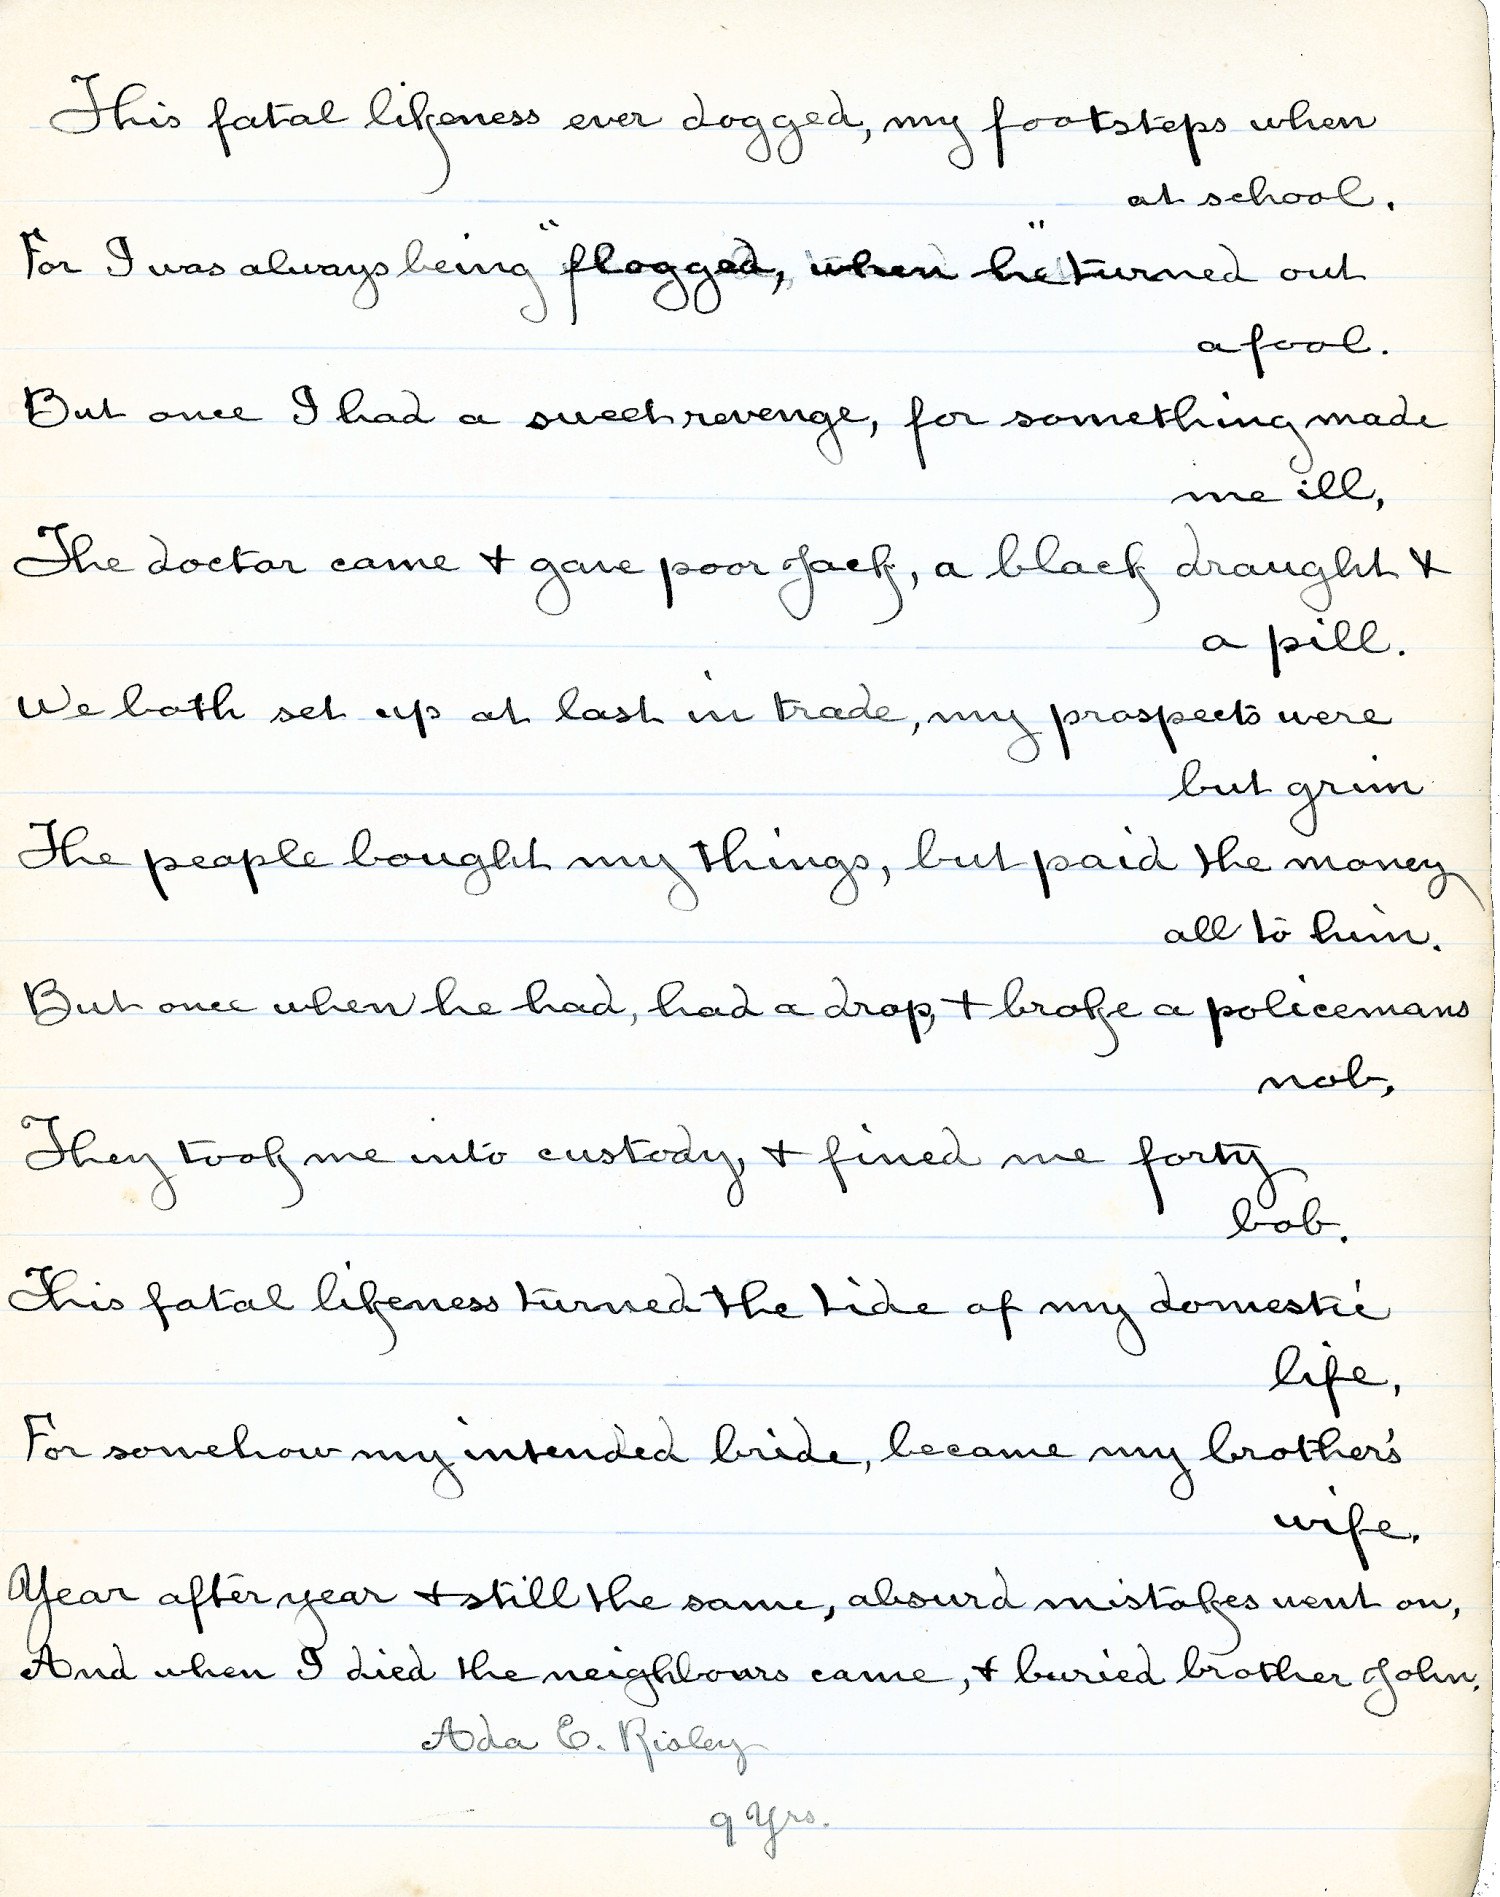 This fatal likeness ever dogged, my footsteps when
at school.
For I was always being "flogged, when he" turned out
a fool.
But once I had a sweet revenge, for something made
me ill,
The doctor came & gave poor Jack, a black draught &
a pill.
We both set up at last in trade, my prospects were
but grim
The people bought my things, but paid the money
all to him.
But once when he had, had a drop, & broke a policemans
nob,
They took me into custody, & fined me forty
bob.
This fatal likeness turned the tide of my domestic
life,
For somehow my intended bride, became my brother's
wife.
Year after year & still the same, absurd mistakes went on,
And when I died the neighbours came, & buried brother John.
Ada E. Risley
9 Yrs.